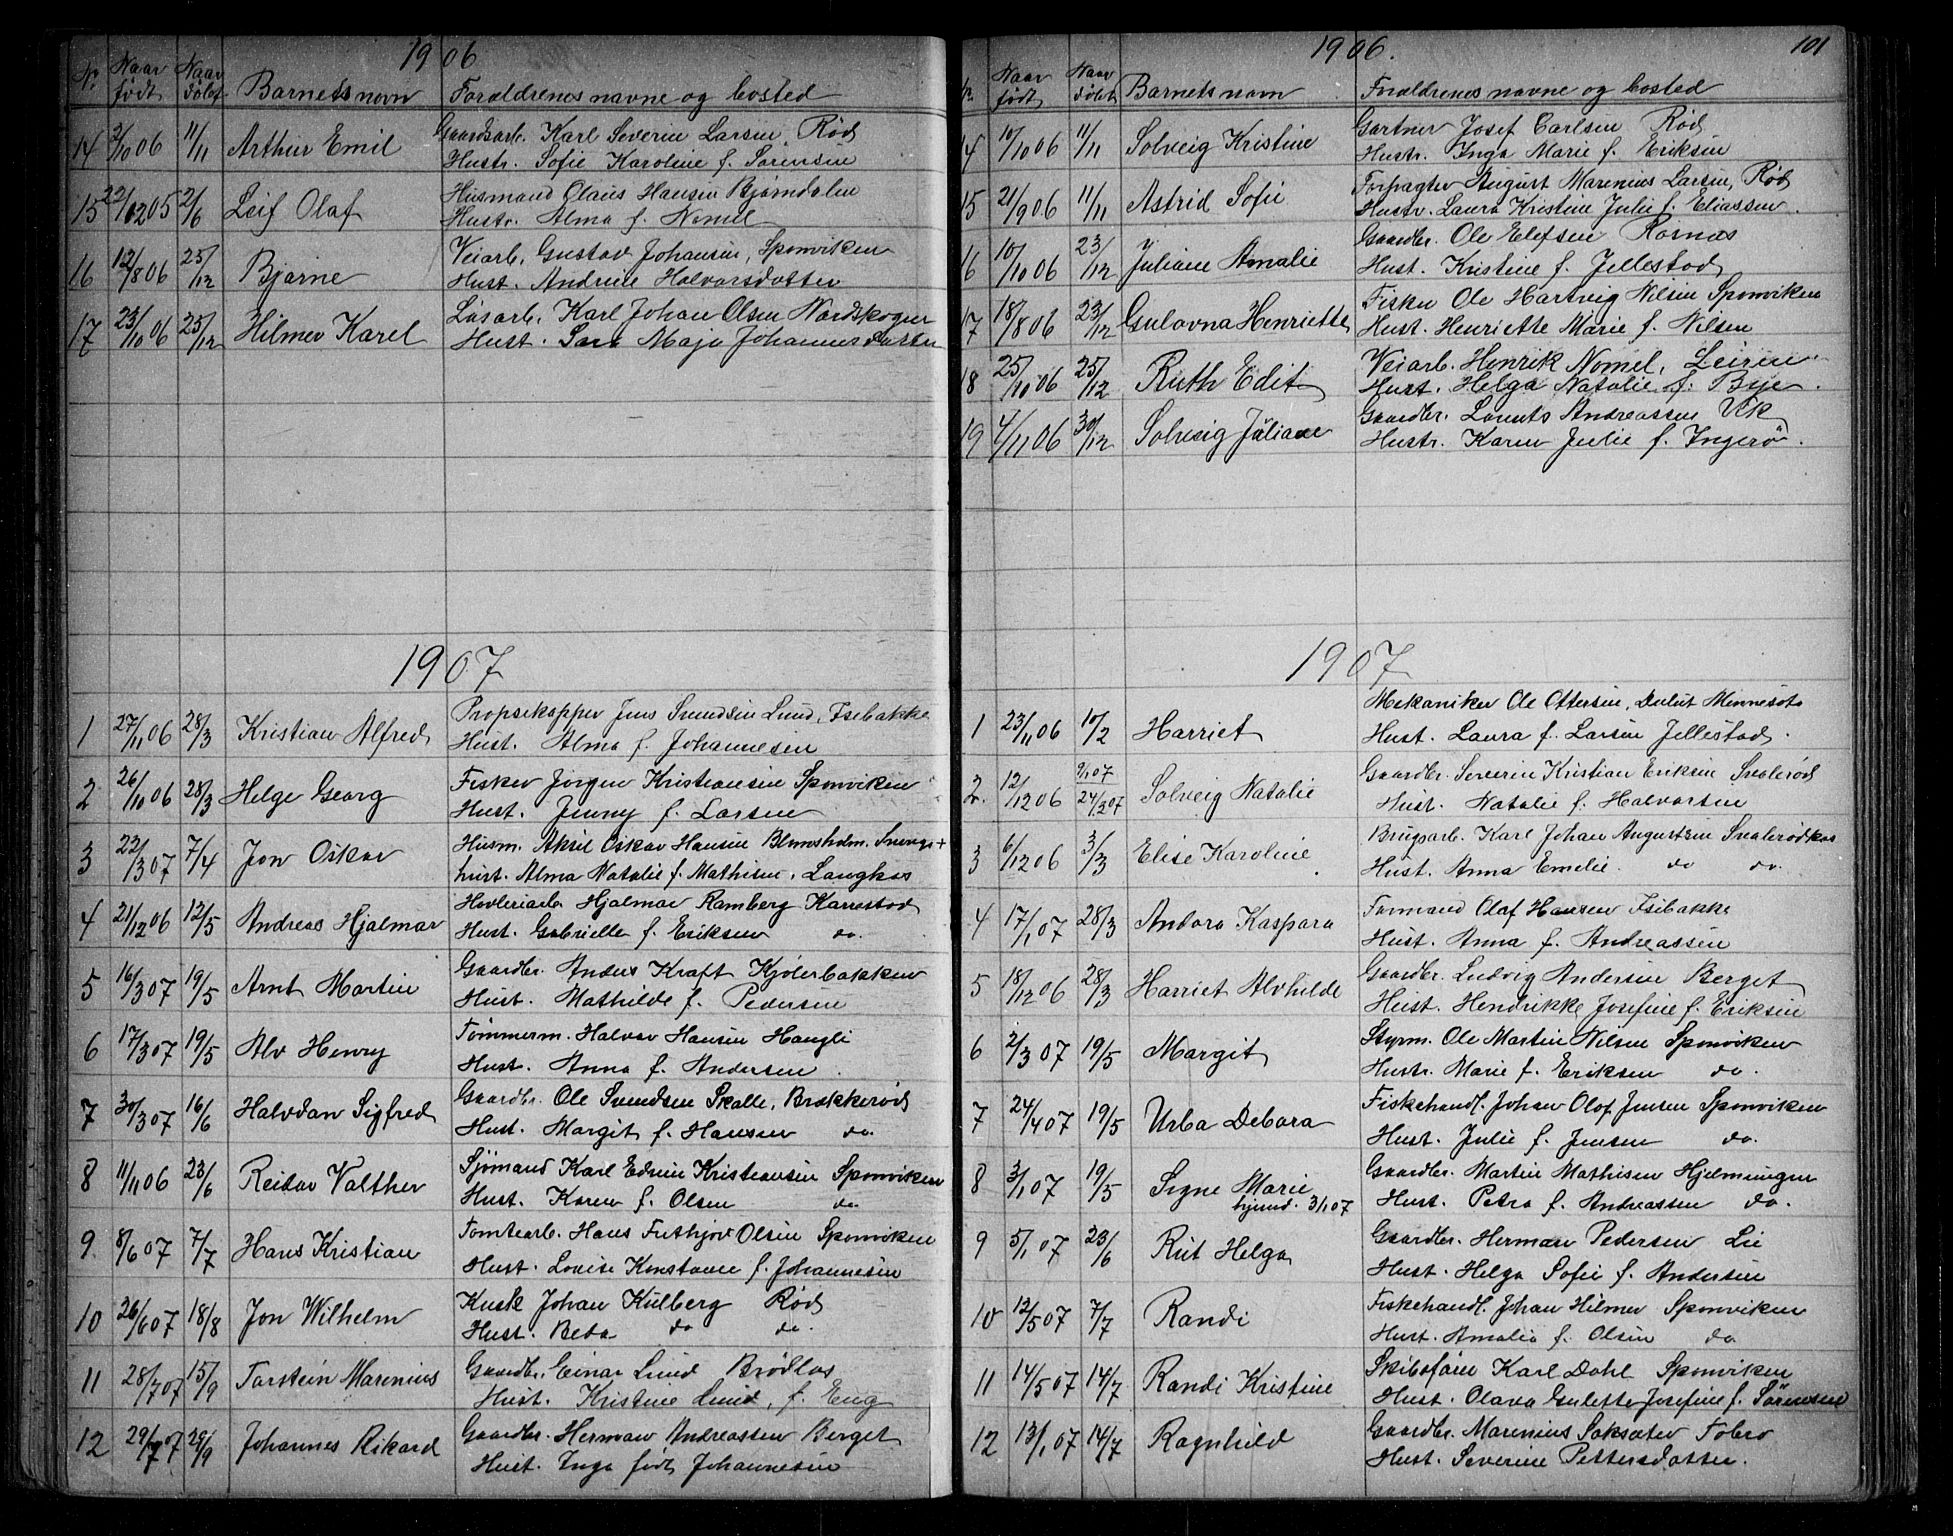 1906
Nr. Naar født Naar døbt Barnets navn Forældrenes navne og bosted
14 2/10 06 11/11 Arthur Emil Gaardsarb. Karl Severin Larsen, Rød
Hustr. Sofie Karoline f. Sørensen
15 22/12 05 2/6 Leif Olaf Husmand Olaus Hansen Bjørndalen
Hustr. Alma f. Nomel
16 12/8 06 25/12 Bjarne Veiarb. Gustav Johansen, Sponviken
Hust. Andrine Halvorsdatter
17 23/10 06 25/12 Hilmer Karel Løsarb. Karl Johan Olsen Nordskogen
Hust. Sara Maja Johannesdatter
1907
1 27/11 06 28/3 Kristian Alfred Propsekapper Jens Svendsen Lund, Isebakke
Hust. Alma f. Johannesen
2 26/10 06 28/3 Helge Georg Fisker Jørgen Kristiansen Sponviken
Hust. Jenny f. Larsen
3 22/3 07 7/4 Jon Oskar Husm. Aksel Oskar Hansen Blomsholm.
hust. Alma Natalie f. Mathisen, Langkas
4 21/12 06 12/5 Andreas Hjalmar Høvleriarb. Hjalmar Ramberg Karrestad
Hust. Gabrielle f. Eriksen do.
5 16/3 07 19/5 Arnt Martin Gaardbr. Anders Kraft Kjølerbakken
Hust. Mathilde f. Pedersen
6 17/3 07 19/5 Alv Henry Tømmerm. Halvor Hansen Haugli
Hust. Anna f. Andersen
7 30/3 07 16/6 Halvdan Sigfred Gaardbr. Ole Svendsen Skalle, Brækkerød
Hust. Margit f. Hansen do.
8 11/11 06 23/6 Reidar Valther Sjømand Karl Edvin Kristiansen Sponviken
Hust. Karen f. Olsen do
9. 8/6 07 7/7 Hans Kristian Tomtearb. Hans Frithjov Olsen Sponviken
Hust. Lovise Konstance f. Johannesen
10 26/6 07 18/8 Jon Wilhelm Kusk Johan Kulberg Rød
Hust. Beda do do.
11 28/7 07 15/9 Torstein Marenius Gaardbr. Einar Lund Brødløs
Hust. Kristine Lund, f. Eng
12 29/7 07 29/9 Johannes Rikard Gaardbr. Herman Andreassen Berget
Hust. Inga født Johannesen
1906. 101
Nr. Naar født Naar døbt Barnets navn Forældrenes navne og bosted
14 10/10 06 11/11 Solveig Kristine Gartner Josef Carlsen Rød
Hustr. Inga Marie f. Eriksen
15 21/9 06 11/11 Astrid Sofie Forpagter August Marenius Larsen, Rød
Hustr. Laura Kristine Julie f. Eliassen.
16 10/10 06 23/12 Juliane Amalie Gaardbr. Ole Elefsen Rørnæs
Hust. Kristine f. Jellestad
17 18/8 06 23/12 Gulovna Henriette Fisker Ole Hartvig Nilsen Sponviken
Hust. Henriette Marie f. Nilsen
18 25/10 06 25/12 Ruth Edit Veiarb. Henrik Nomel, Leiren
Hust. Helga Natalie f. Bye.
19 4/11 06 30/12 Solveig Juliane Gaardbr. Lorents Andreassen Vik
Hustr. Karen Julie f. Ingerø.
1907
1 23/11 06 10/2 Harriet Mekaniker Ole Ottersen, Dulut Minnesota
Hust. Laura f. Larsen Jellestad.
2. 12/12 06 9/1 07 24/2 07 Solveig Natalie Gaardbr. Severin Kristian Eriksen Svalerød
Hust. Natalie f. Halvorsen
3 6/12 06 3/3 Elise Karoline Brugsarb. Karl Johan Augustsen Svalerødkas
Hust. Anna Emelie. do do.
4 17/1 07 28/3 Andora Kaspara Formand Olaf Hansen Isebakke
Hust. Anna f. Andreassen
5 18/12 06 28/3 Harriet Alvhilde Gaardbr. Ludvig Andersen Berget
Hust. Hendrikke Josefine f. Eriksen
6 2/3 07 19/5 Margit Styrm. Ole Martin Nilsen Sponviken
Hustr. Marie f. Eriksen do.
7 24/4 07 19/5 Urba Debora Fiskehandl. Johan Olaf Jensen Sponviken
Hust. Julie f. Jensen do.
8 3/1 07 19/5 Signe Marie Gaardbr. Martin Mathisen Hjelmungen
hjemd. 3/1 07 Hust. Petra f. Andreassen do.
9 5/1 07 23/6 Rut Helga Gaardbr. Herman Pedersen Lie
Hust. Helga Sofie f. Andersen
10 12/5 07 7/7 Randi Fiskehandl. Johan Hilmer Sponviken
Hust. Amalia f. Olsen do
11 14/5 07 14/7 Randi Kristine Skibsfører Karl Dahl Sponviken
Hust. Olava Gulette Josefine f. Sørensen
12 13/1 07 14/7 Ragnhild Gaardbr. Marenius Saksæter Fobro
Hust. Severine Pettersdatter.